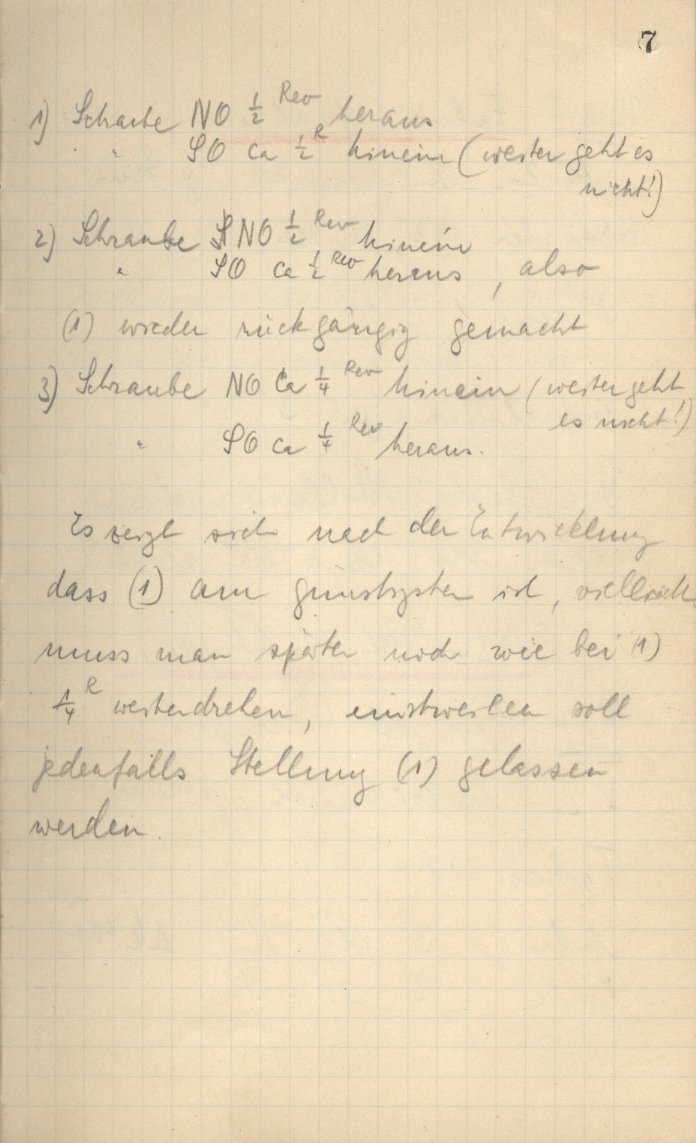 7
1) Schraube NO ½ Rev heraus
" SO ca ½ R hinein (weiter geht es
nicht!)
2) Schraube NO ½ Rev hinein
" SO ca ½ Rev heraus, also
(1) wieder rückgängig gemacht
3) Schraube NO ca ¼ Rev hinein (weiter geht
es nicht!)
" SO ca ¼ Rev heraus.
Es zeigt sich nach der Entwicklung
dass (1) am günstigsten ist, vielleicht
muss man später noch wie bei (1)
¼ R weiterdrehen, einstweilen soll
jedenfalls Stellung (1) gelassen
werden.